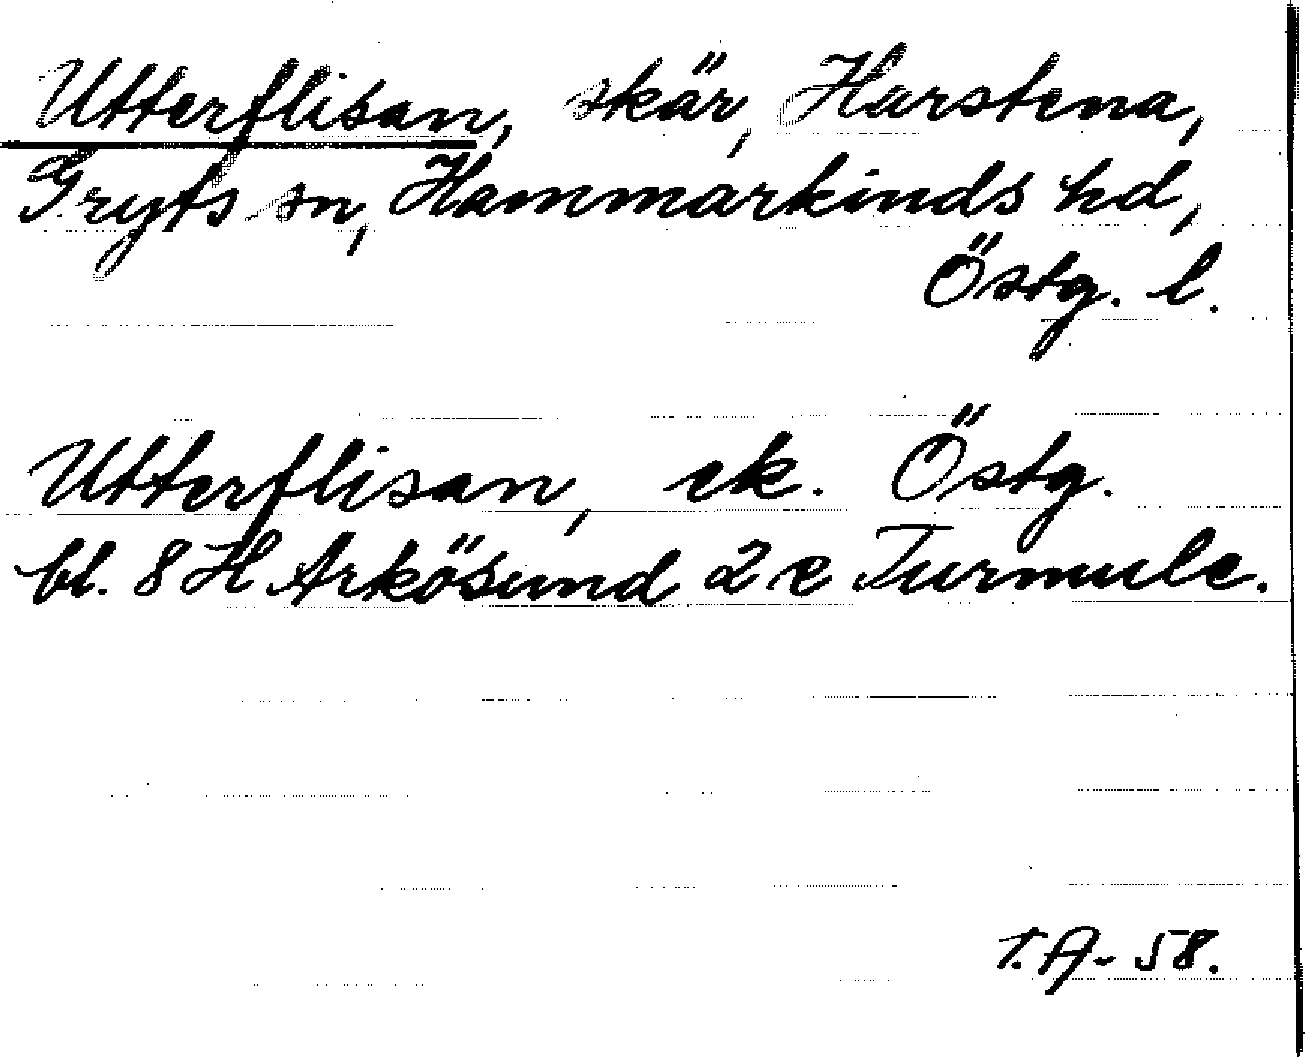 Utterflisan, skär, Harstena,
Gryts sn, Hammarkinds hd,
Östg. l.
Utterflisan, ek. Östg.
bl. 8 H Arkösund 2 c Turmule.
T.A- 58.